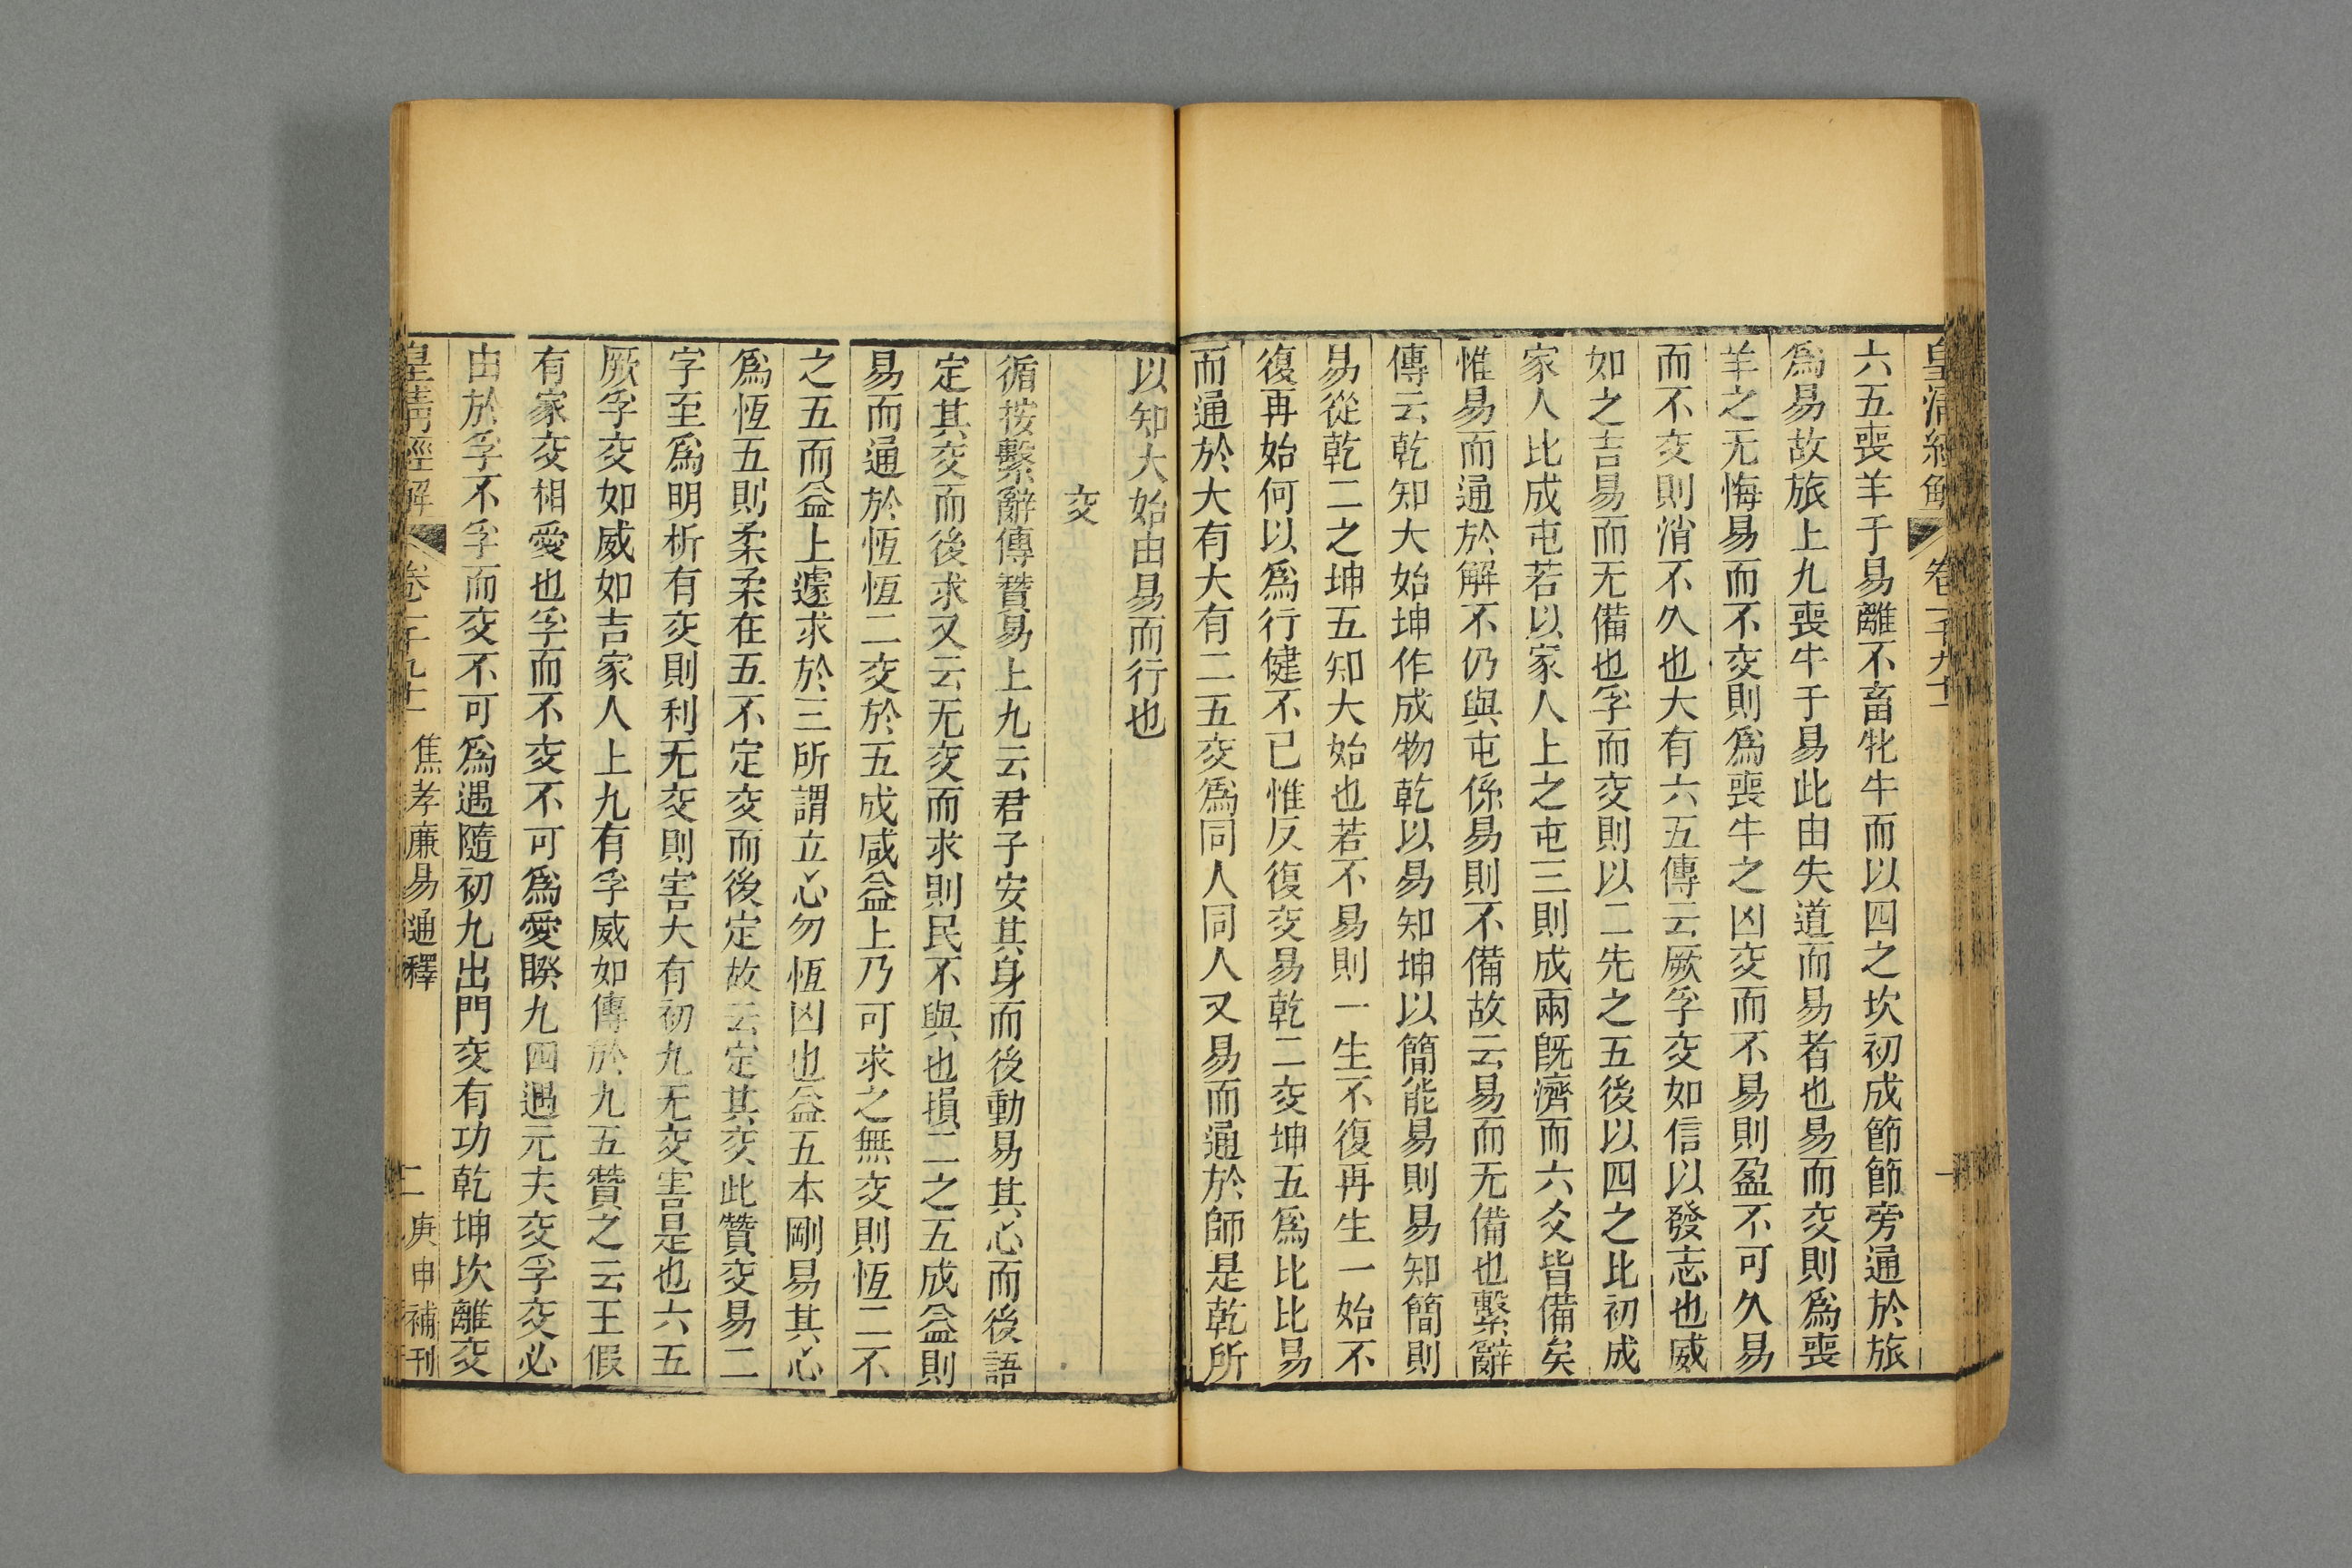 皇清經解 卷一千九十一 一
六五喪羊于易離不畜牝牛而以四之坎初成節節旁通於旅
爲易故旅上九喪牛于易此由失道而易者也易而交則爲喪
羊之无悔易而不交則爲喪牛之凶交而不易則盈不可久易
而不交則消不久也大有六五傳云厥孚交如信以發志也威
如之吉易而无備也孚而交則以二先之五後以四之比初成
家人比成屯若以家人上之屯三則成兩旣濟而六爻皆備矣
惟易而通於解不仍與屯係易則不備故云易而无備也繫辭
傳云乾知大始坤作成物乾以易知坤以簡能易則易知簡則
易從乾二之坤五知大始也若不易則一生不復再生一始不
復再始何以爲行健不已惟反復交易乾二交坤五爲比比易
而通於大有大有二五交爲同人同人又易而通於師是乾所
以知大始由易而行也
交
循按繫辭傳贊易上九云君子安其身而後動易其心而後語
定其交而後求又云无交而求則民不與也損二之五成益則
易而通於恆恆二交於五成咸益上乃可求之無交則恆二不
之五而益上遽求於三所謂立心勿恆凶也益五本剛易其心
爲恆五則柔柔在五不定交而後定故云定其交此贊交易二
字至爲明析有交則利无交則害大有初九无交害是也六五
厥孚交如威如吉家人上九有孚威如傳於九五贊之云王假
有家交相愛也孚而不交不可爲愛睽九四遇元夫交孚交必
由於孚不孚而交不可爲遇隨初九出門交有功乾坤坎離交
皇清經解 卷一千九十一 焦孝廉易通釋 二 庚申補刊